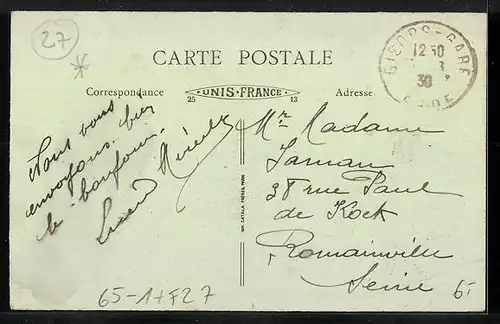 27
*
CARTE POSTALE
Correspondance
UNIS-FRANCE
25 13
Adresse
GISORS-GARE
12 30
3
30
EURE
Nous vous
envoyons
le bonjour.
Mr Madame
Jaman
38 rue Paul
de Kock
Romainville
Seine
IMP. CATALA FRÈRES, PARIS
65-1+F27
6-